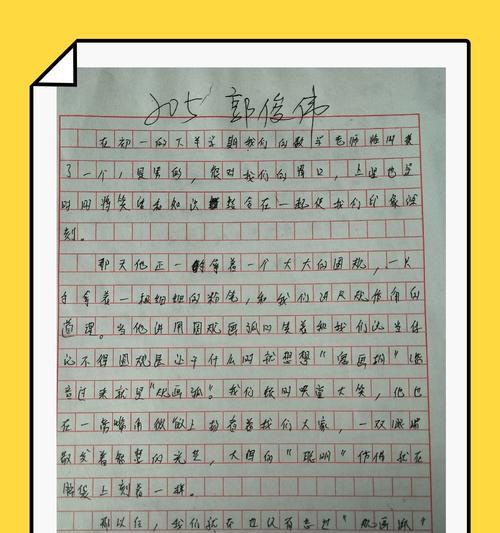 205 郭俊伟
在初一的下半学期我们的数学老师临时换
了一个，男的，很对我们的胃口，上课也是
时不时将笑话和知识结合在一起使我们印象深
刻。
那天他正一拿着一个大大的圆规，一只
手拿着一根细细的粉笔，和我们讲尺规作角的
道理。当他讲用圆规画弧的时候和我们说当你
记不得圆规是干什么时就想想“鬼画胡”
音过来就是“规画弧。我们顿时哄堂大笑，他也
在一旁嘴角微微上扬看着我们大家，一双眼睛
散发着智慧的光芒，大写的“聪明”仿佛就在
脸上刻着一样。
那以后，我们就在也没有忘过“规画弧”